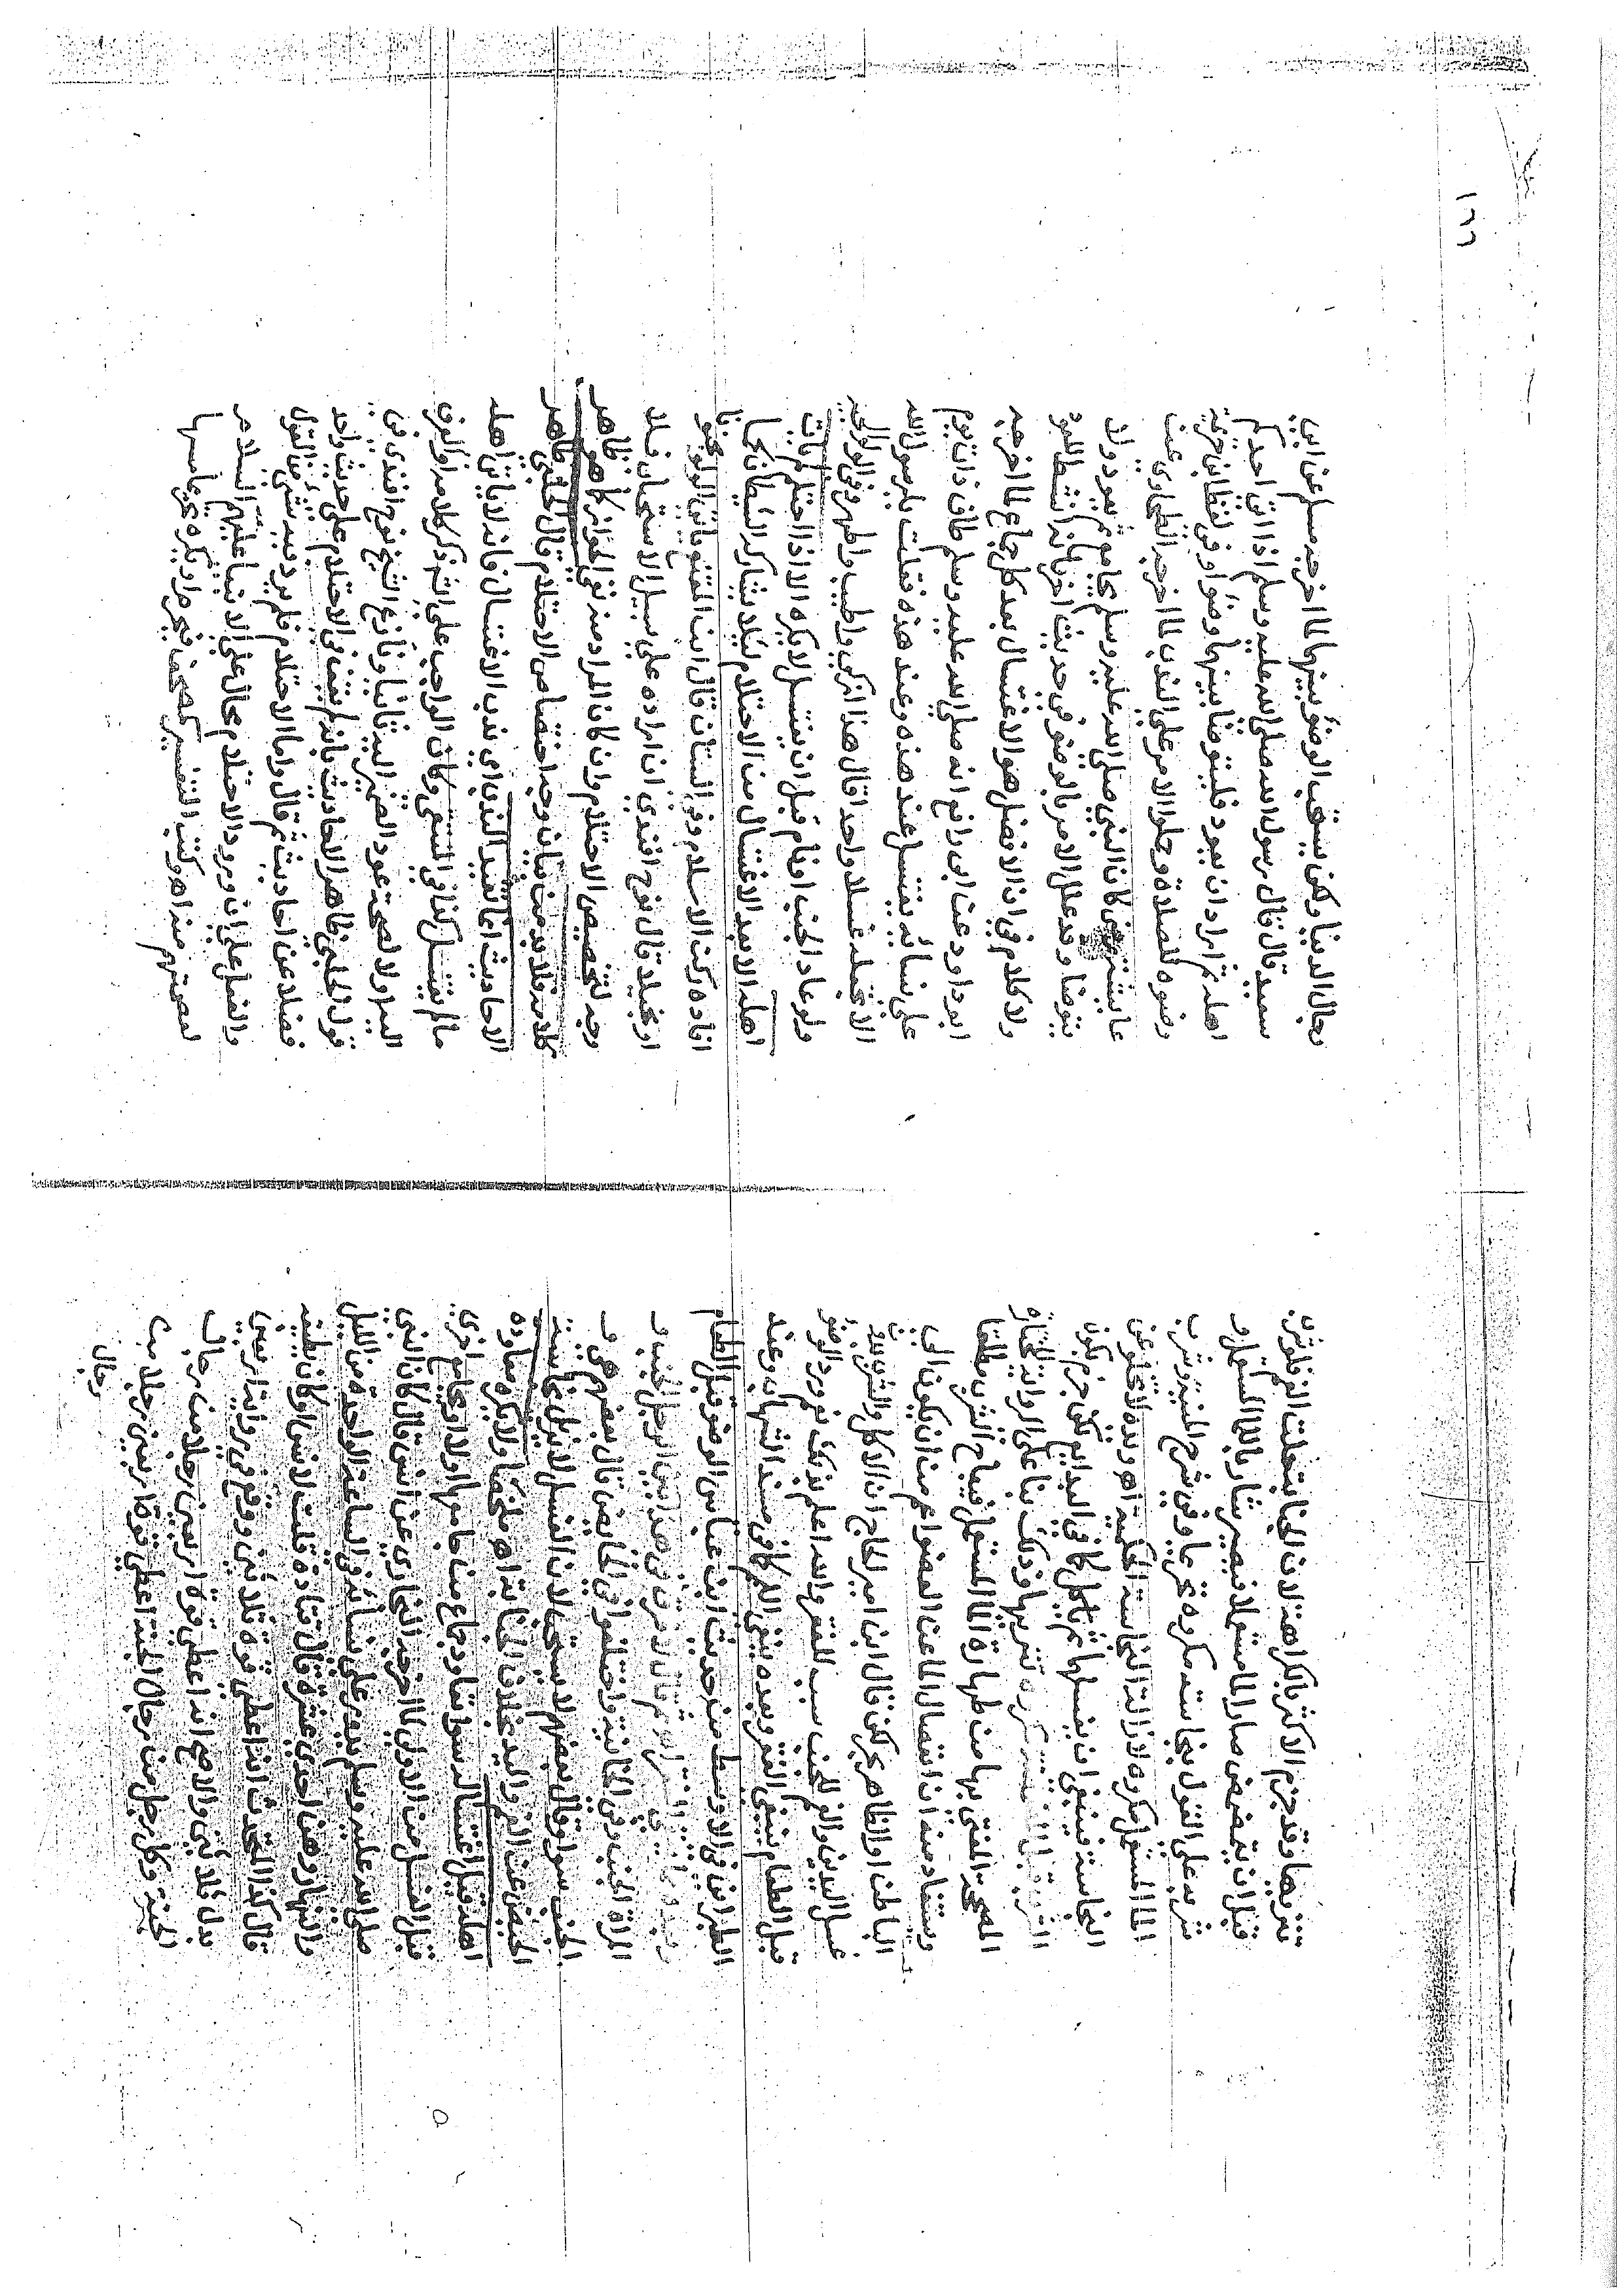 شربها وقد جزم الاكثر بالكراهة لان الجنابة حلت الفم فلو شرب
قبل ان يتمضمض صار الماء مستعملا فيصير شاربا للماء المستعمل و
شربه على القول بنجاسته مكروه تحريما وفي شرح المنية وشرب
الماء المستعمل مكروه لازالته النجاسة الحكمية اه ويده لا تخلو عن
النجاسة فينبغي ان يغسلها ثم ياكل كما في البدايع لكن جزم بكون
الشرب قبل مكروه تنزيها وذلك بناء على الرواية المختارة
المصححة المفتى بها من طهارة الماء المستعمل فيباح الشرب مطلقا
ويستفاد منه ان انفصال الماء عن العضو اعم من ان يكون الى
الباطن او الظاهر لكن قال ابن امير الحاج ان الاكل والشرب بدون
غسل اليدين والفم للجنب سبب للفقر والله اعلم بذلك نعم ورد الوضوء
قبل الطعام ينفي الفقر وبعده ينفي اللمم كما في مسند الشهاب وعند
الطبراني في الاوسط من حديث ابن عباس الوضوء قبل الطعام
وبعده مما ينفي الفقر اه ثم قال لا فرق في هذا بين الرجل الجنب و
المراة الجنب وفي الخانية واختلفوا في الحايض قال بعضهم هي و
الجنب سواء وقال بعضهم لا يستحب لان الغسل لا يزيل نجاسة
الحيض عن الفم واليد بخلاف الجنابة اه ملخصا ولا يكره معاودة
اهله قبل اغتساله سواء جماع من جامعها اولا او يجامع اخرى
قبل الغسل من الاولى لما اخرجه البخاري عن انس قال كان النبي
صلى الله عليه وسلم يدور على نسائه في الساعة الواحدة من الليل
والنهار وهن احدى عشرة قال قتادة قلت لانس اوكان يطيقه
قال كنا نتحدث انه اعطي قوة ثلاثين ووقع في رواية اربعين
بدل ثلاثين والاصح انه اعطي قوة اربعين رجلا من رجال
الجنة وكل رجل من رجال الجنة اعطي قوة اربعين رجلا من
رجال
١٢٦
رجال الدنيا ولكن يستحب الوضوء بينهما لما اخرجه مسلم عن ابي
سعيد قال قال رسول الله صلى الله عليه وسلم اذا اتى احدكم
اهله ثم اراد ان يعود فليتوضا بينهما وضوءا وفي لفظ ابن خزيمة
وضوءه للصلاة وحملوا الامر على الندب لما اخرجه الطحاوي عن
عايشة كان النبي صلى الله عليه وسلم يجامع ثم يعود ولا
يتوضا وقد علل الامر بالوضوء في حديث اخر بانه انشط للعود
ولا كلام في ان الافضل هو الاغتسال بعد كل جماع لما اخرجه
ابو داود عن ابي رافع انه صلى الله عليه وسلم طاف ذات يوم
على نسائه يغتسل عند هذه وعند هذه فقلت يا رسول الله
الا تجعله غسلا واحدا قال هذا ازكى واطيب واطهر وفي الولوالجية
ولو عاد الجنب او نام قبل ان يغتسل لا يكره الا اذا احتلم لم يات
اهله الا بعد الاغتسال من الاحتلام لئلا يشاركه الشيطان كما
افاده ركن الاسلام وفي البستان قال ابن المقنع ياتي الولد مجنونا
او بخيلا قال نوح افندي ان اراده على سبيل الاستحباب فلا
وجه لتخصيص الاحتلام وان كان المراد منه نفي الجواز كما هو ظاهر
كلامه فلا بد من بيان وجه اختصاص الاحتلام قال الحلبي ظاهر
الاحاديث انما تفيد الندب اي ندب الاغتسال فانه لا ياتي اهله
مالم يغتسل كما في المبتغى فكان الواجب على ذكر كلامه او العزو
اليه اولا لصحة عود الضمير اليه ثانيا ونازع الشيخ نوح افندي في
قول الحلبي ظاهر الاحاديث بانه لم يقف في الاحتلام على حديث واحد
فضلا عن احاديث ثم قال واما الاحتلام فلم يرد فيه شيء من القول
والفعل على ان ورود الاحتلام محال على الانبياء عليهم السلام
لعصمتهم منه اه وكتب التفسير كمصحف فيحرم او يكره تحريما مسها